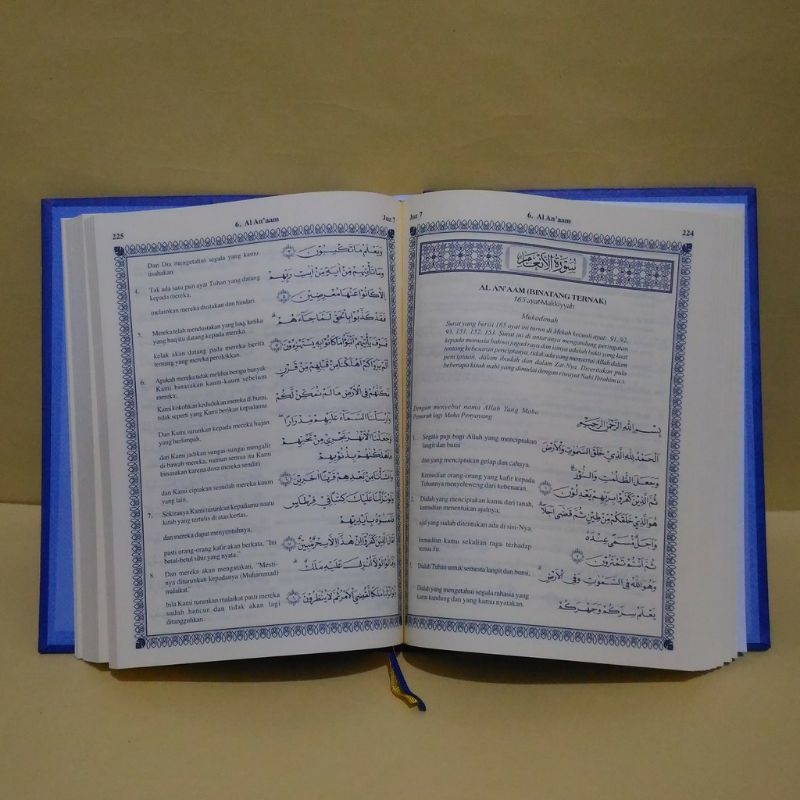 Juz 7
6. Al An'aam
224
سُورَةُ الْأَنْعَامِ
AL AN'AAM (BINATANG TERNAK)
165 ayat Makkiyyah
Mukadimah
Surat yang berisi 165 ayat ini turun di Mekah kecuali ayat: 91, 92,
Dengan menyebut nama Allah Yang Maha
Pemurah lagi Maha Penyayang
1. Segala puji bagi Allah yang menciptakan
langit dan bumi
dan yang menciptakan gelap dan cahaya.
kemudian orang-orang yang kafir kepada
Tuhannya menyeleweng dari kebenaran.
2. Dialah yang menciptakan kamu dari tanah,
kemudian menentukan ajalnya,
ajal yang sudah ditentukan ada di sisi-Nya,
kemudian kamu sekalian ragu terhadap
temu itu.
Dialah Tuhan untuk semesta langit dan bumi,
Dialah yang mengetahui segala rahasia yang
kamu kandung dan yang kamu nyatakan.
بِسْمِ اللهِ الرَّحْمٰنِ الرَّحِيْمِ
اَلْحَمْدُ لِلّٰهِ الَّذِيْ خَلَقَ السَّمٰوٰتِ وَالْاَرْضَ
وَجَعَلَ الظُّلُمٰتِ وَالنُّوْرَ
ثُمَّ الَّذِيْنَ كَفَرُوْا بِرَبِّهِمْ يَعْدِلُوْنَ
هُوَ الَّذِيْ خَلَقَكُمْ مِنْ طِيْنٍ ثُمَّ قَضٰى اَجَلًا
وَاَجَلٌ مُسَمًّى عِنْدَهُ
ثُمَّ اَنْتُمْ تَمْتَرُوْنَ
وَهُوَ اللهُ فِي السَّمٰوٰتِ وَفِي الْاَرْضِ
يَعْلَمُ سِرَّكُمْ وَجَهْرَكُمْ
225
6. Al An'aam
Juz 7
Dan Dia mengetahui segala yang kamu
usahakan.
4. Tak ada satu pun ayat Tuhan yang datang
kepada mereka,
melainkan mereka dustakan dan hindari.
5. Mereka telah mendustakan yang haq, ketika
yang haq itu datang kepada mereka.
kelak akan datang pada mereka berita
tentang yang mereka perolokkan.
6. Apakah mereka tidak melihat berapa banyak
Kami binasakan kaum-kaum sebelum
mereka;
Kami kokohkan kedudukan mereka di bumi,
tidak seperti yang Kami berikan kepadamu.
Dan Kami turunkan kepada mereka hujan
yang berlimpah,
dan Kami jadikan sungai-sungai mengalir
di bawah mereka, namun semua itu Kami
binasakan karena dosa mereka sendiri
dan Kami ciptakan sesudah mereka kaum
yang lain.
7. Sekiranya Kami turunkan kepadamu suatu
kitab yang tertulis di atas kertas,
dan mereka dapat menyentuhnya,
pasti orang-orang kafir akan berkata, "Ini
betul-betul sihir yang nyata."
8. Dan mereka akan mengatakan, "Mesti-
nya diturunkan kepadanya (Muhammad)
malaikat."
bila Kami turunkan malaikat pasti mereka
sudah hancur dan tidak akan lagi
ditangguhkan.
وَيَعْلَمُ مَا تَكْسِبُوْنَ
وَمَا تَأْتِيْهِمْ مِنْ اٰيَةٍ مِنْ اٰيٰتِ رَبِّهِمْ
اِلَّا كَانُوْا عَنْهَا مُعْرِضِيْنَ
فَقَدْ كَذَّبُوْا بِالْحَقِّ لَمَّا جَاءَهُمْ
فَسَوْفَ يَأْتِيْهِمْ اَنْبٰؤُا مَا كَانُوْا بِهِ يَسْتَهْزِءُوْنَ
اَلَمْ يَرَوْا كَمْ اَهْلَكْنَا مِنْ قَبْلِهِمْ مِنْ قَرْنٍ
مَكَّنّٰهُمْ فِي الْاَرْضِ مَا لَمْ نُمَكِّنْ لَكُمْ
وَاَرْسَلْنَا السَّمَاءَ عَلَيْهِمْ مِدْرَارًا
وَجَعَلْنَا الْاَنْهٰرَ تَجْرِيْ مِنْ تَحْتِهِمْ
فَاَهْلَكْنٰهُمْ بِذُنُوْبِهِمْ
وَاَنْشَأْنَا مِنْ بَعْدِهِمْ قَرْنًا اٰخَرِيْنَ
وَلَوْ نَزَّلْنَا عَلَيْكَ كِتٰبًا فِيْ قِرْطَاسٍ
فَلَمَسُوْهُ بِاَيْدِيْهِمْ
لَقَالَ الَّذِيْنَ كَفَرُوْا اِنْ هٰذَا اِلَّا سِحْرٌ مُبِيْنٌ
وَقَالُوْا لَوْلَا اُنْزِلَ عَلَيْهِ مَلَكٌ
وَلَوْ اَنْزَلْنَا مَلَكًا لَقُضِيَ الْاَمْرُ ثُمَّ لَا يُنْظَرُوْنَ